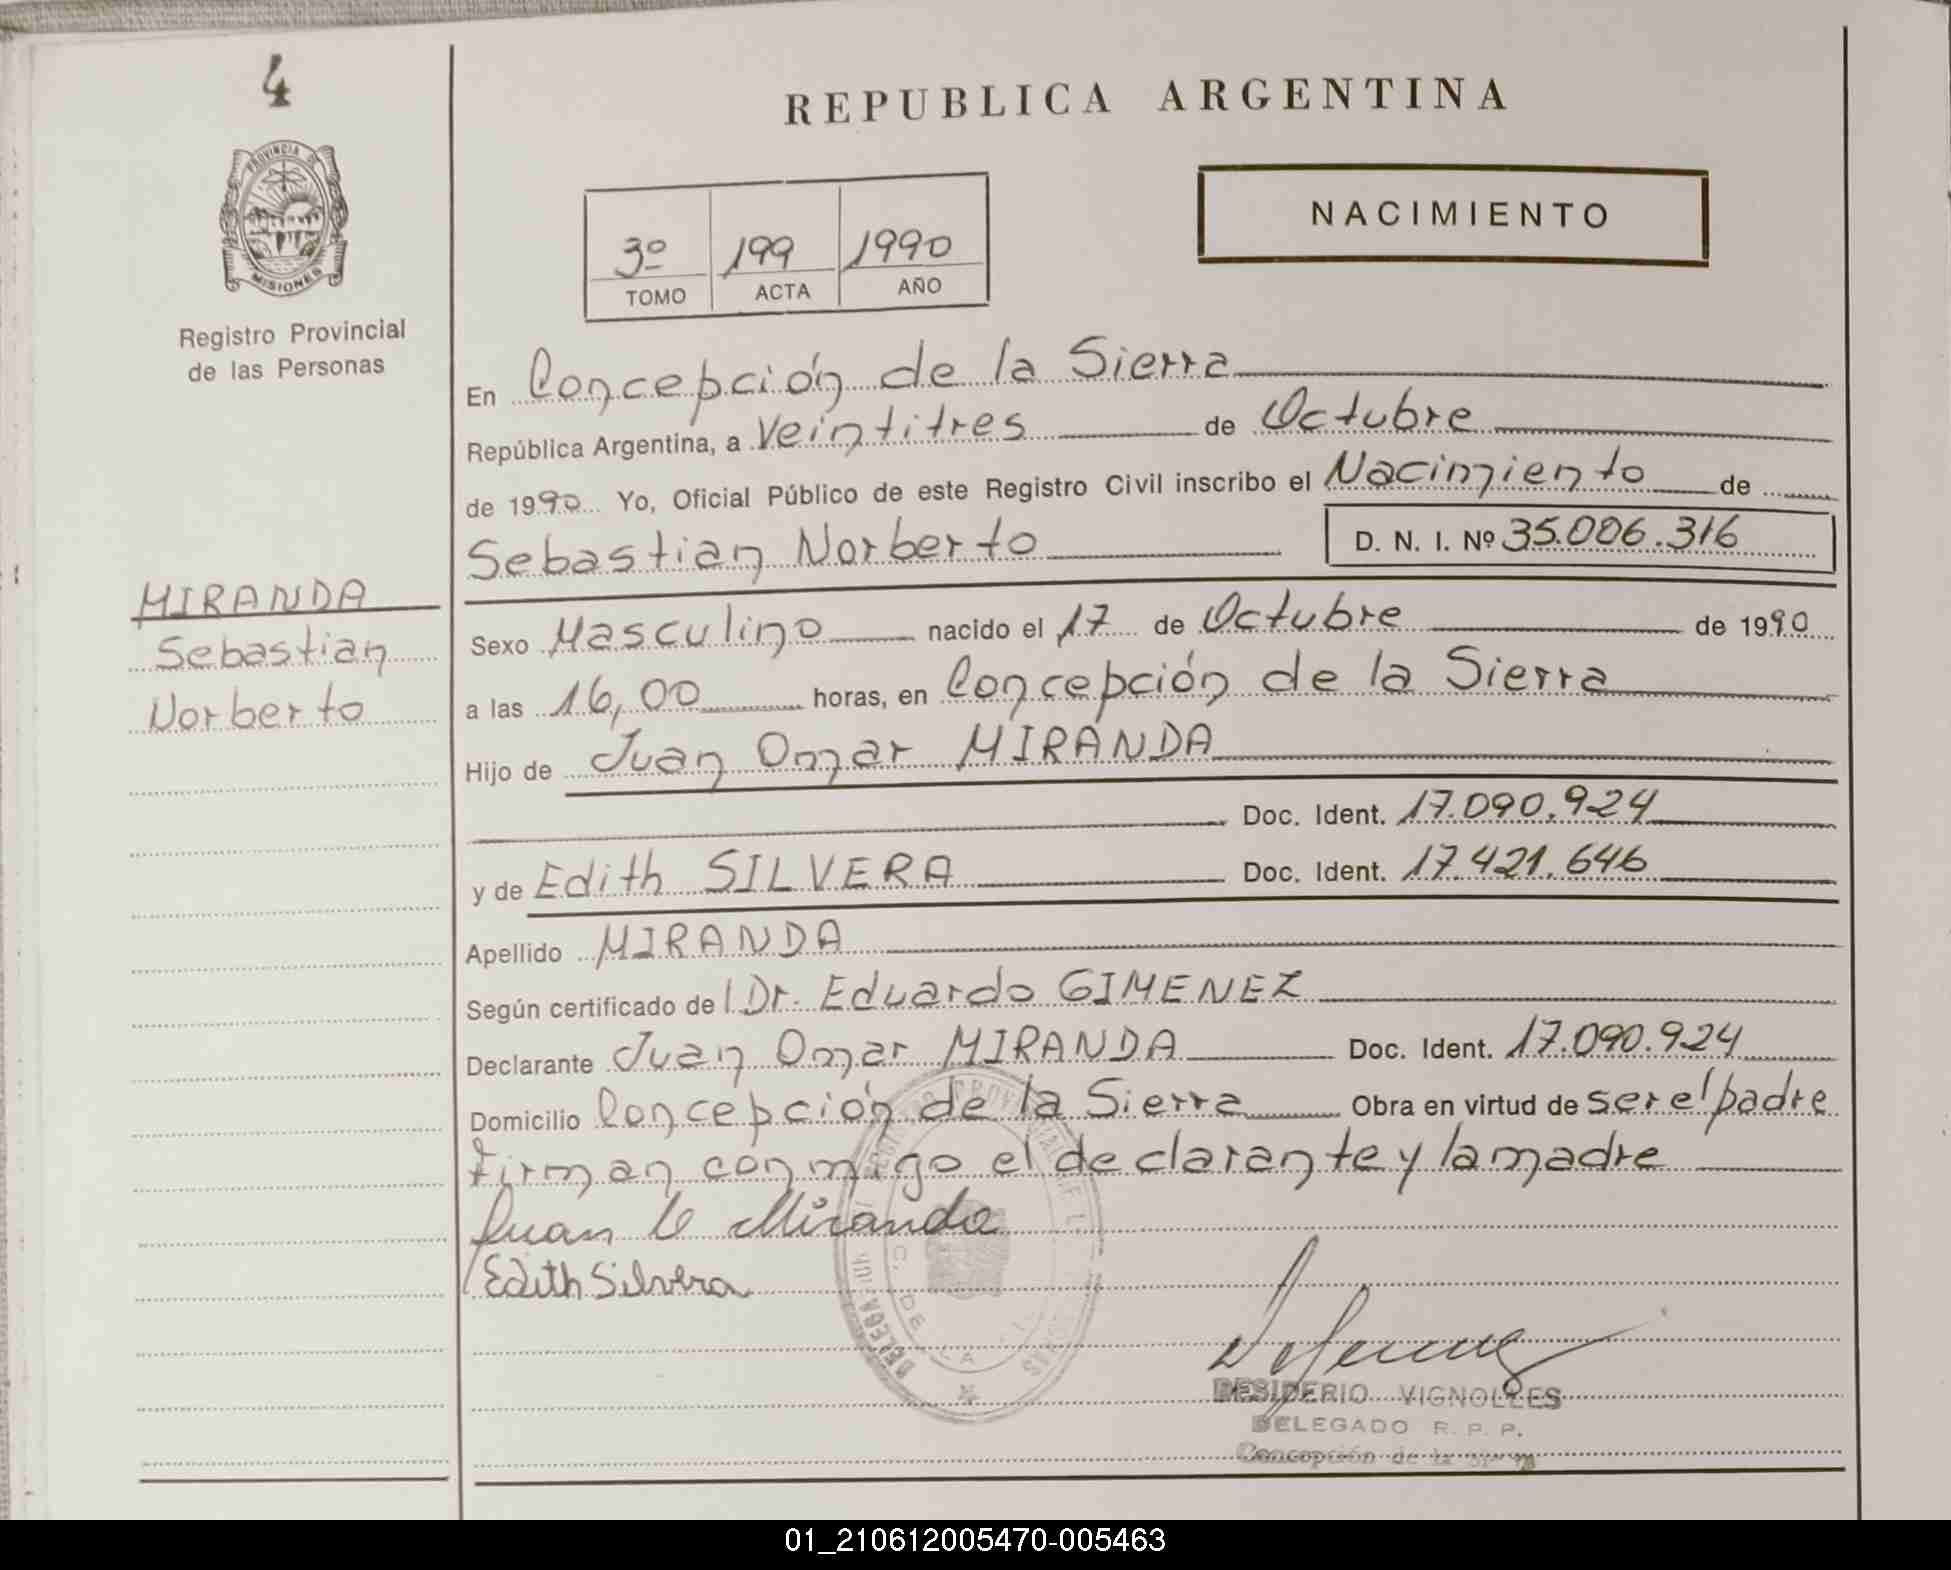 4
PROVINCIA DE
MISIONES
Registro Provincial
de las Personas
MIRANDA
Sebastian
Norberto
REPUBLICA ARGENTINA
3º 199 1990
TOMO ACTA AÑO
NACIMIENTO
En Concepción de la Sierra
República Argentina, a Veintitres de Octubre
de 1990 Yo, Oficial Público de este Registro Civil inscribo el Nacimiento de
Sebastian Norberto D. N. I. Nº 35.006.316
Sexo Masculino nacido el 17 de Octubre de 1990
a las 16,00 horas, en Concepción de la Sierra
Hijo de Juan Omar MIRANDA
Doc. Ident. 17.090.924
y de Edith SILVERA Doc. Ident. 17.421.646
Apellido MIRANDA
Según certificado de Dr. Eduardo GIMENEZ
Declarante Juan Omar MIRANDA Doc. Ident. 17.090.924
Domicilio Concepción de la Sierra Obra en virtud de ser el padre
firman conmigo el declarante y la madre
Juan O Miranda
Edith Silvera
DESIDERIO VIGNOLLES
DELEGADO R. P. P.
Concepción de la Sierra
01_210612005470-005463